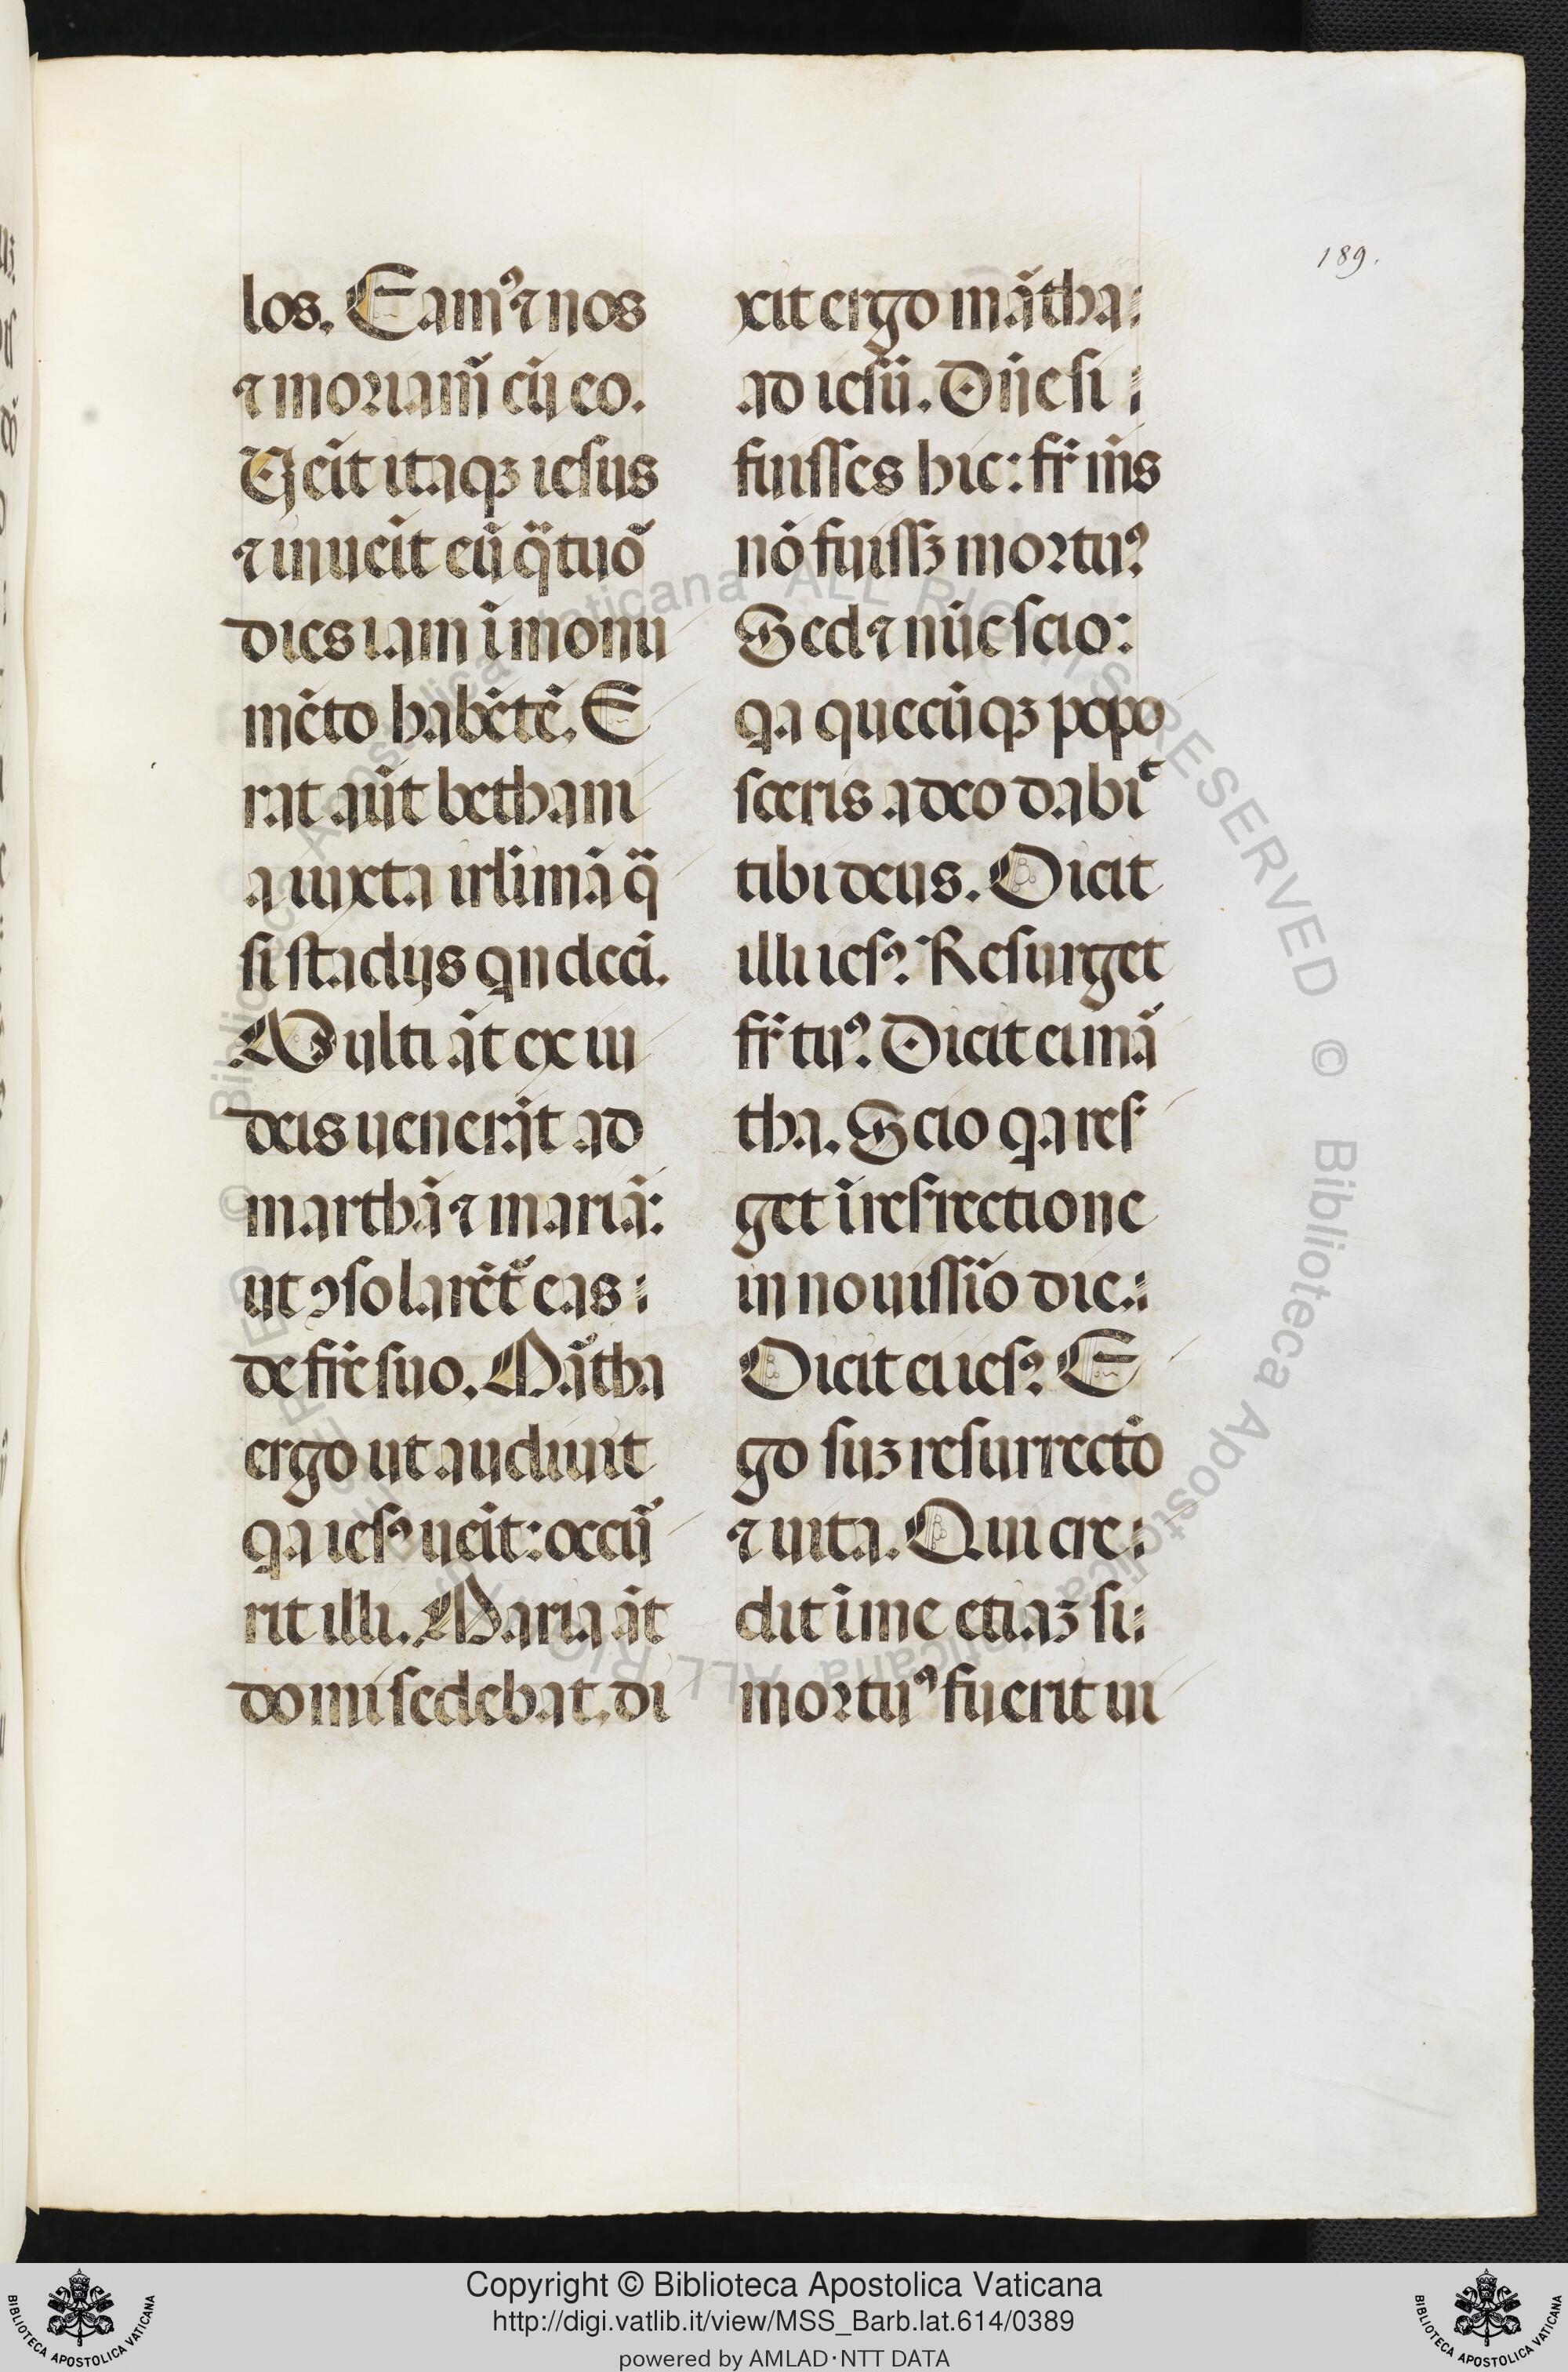 189.
los. Eamꝰ ⁊ nos
⁊ moriam̃ cũ eo.
Uẽit itaqꝫ iesus
⁊ inuẽit eũ q̃tuõ
dies iam ĩ monu
mẽto habẽtẽ. E
rat aũt bethani
a iuxta irlimã q̃
si stadijs qndecĩ.
Multi ãt ex iu
deis uenerãt ad
marthã ⁊ mariã:
ut ꝯsolarẽt̃ eas
de fr̃e suo. Mãtha
ergo ut audiuit
qa iesꝰ uẽit: occũ
rit illi. Maria ãt
domi sedebat. di
xit ergo mãtha
ad iesũ. Dñe si
fuisses hic: fr̃ m̃s
nõ fuissꝫ mortuꝰ
Sed ⁊ nũc scio:
qa quecũqꝫ popo
sceris a deo dabiᵗ
tibi deus. Dicit
illi iesꝰ. Resurget
fr̃ tuꝰ. Dicit ei mã
tha. Scio qa res
get ĩ resrectione
in nouissĩo die.
Dicit ei iesꝰ. E
go suꝫ resurrectõ
⁊ uita. Qui cre
dit ĩ me etiaꝫ si
mortuꝰ fuerit ui
© Biblioteca Apostolica Vaticana ALL RIGHTS RESERVED
Copyright © Biblioteca Apostolica Vaticana
http://digi.vatlib.it/view/MSS_Barb.lat.614/0389
powered by AMLAD·NTT DATA
BIBLIOTECA APOSTOLICA VATICANA
BIBLIOTECA APOSTOLICA VATICANA